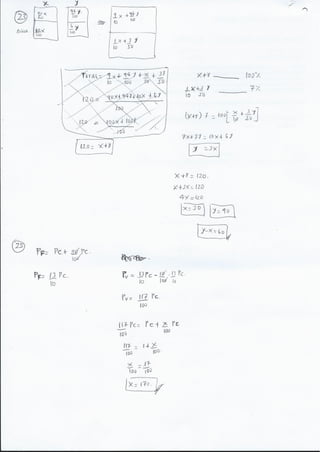 x y
25
9x/10 94y/100 ⇒ 9x/10 + 94y/100
10x/100 6y/100 x/10 + 3y/50
TOTAL: 9x/10 + 94y/100 + x/10 + 3y/50
120 = 90x+94y+10x+6y/100
120 = 100x+100y/100
120 = x+y
x+y — 100%
1x/10 + 3y/50 — 7%
(x+y) 7 = 100[x/10 + 3y/50]
7x+7y = 10x+6y
y = 3x
x+y = 120
x+3x = 120
4x = 120
x = 30 y = 90
y-x = 60
25
PF = PC + 30/100 PC
PF = 13/10 PC
PV = 13/10 PC - 10/100 · 13/10 PC
PV = 117/100 PC
117/100 PC = PC + x/100 PC
117/100 = 1 + x/100
x/100 = 17/100
x = 17%